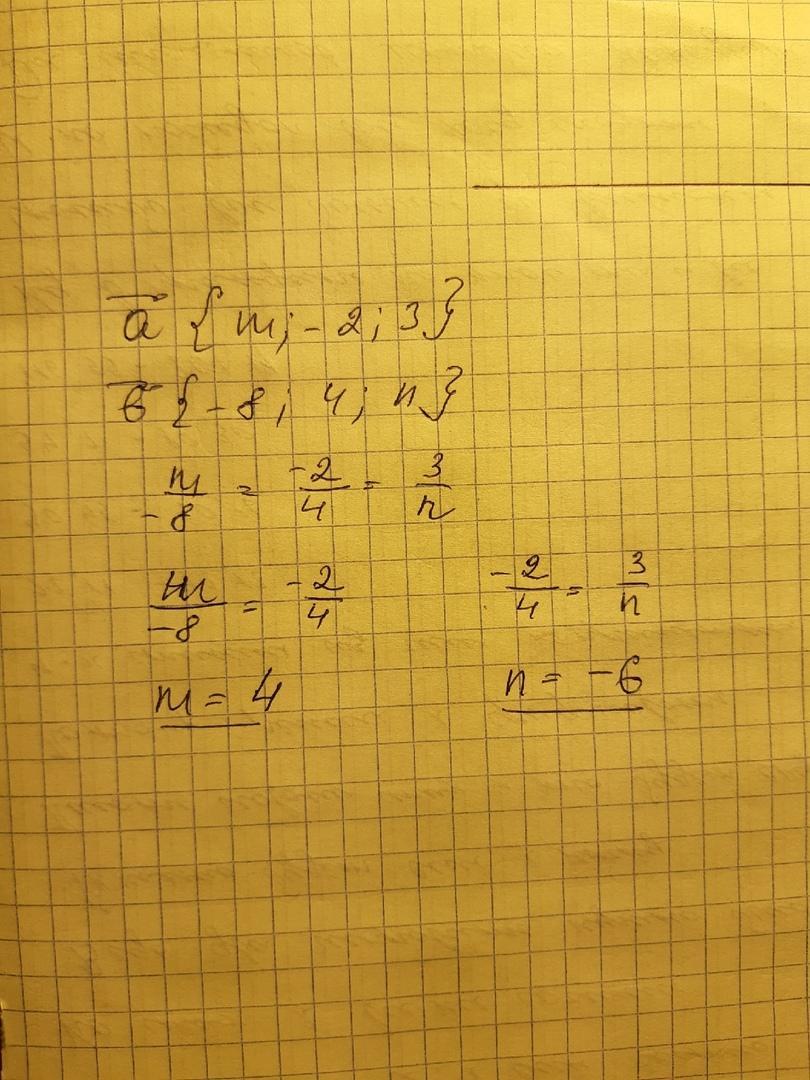 a {m; -2; 3}
в {-8; 4; n}
m/-8 = -2/4 = 3/n
m/-8 = -2/4 -2/4 = 3/n
m = 4 n = -6